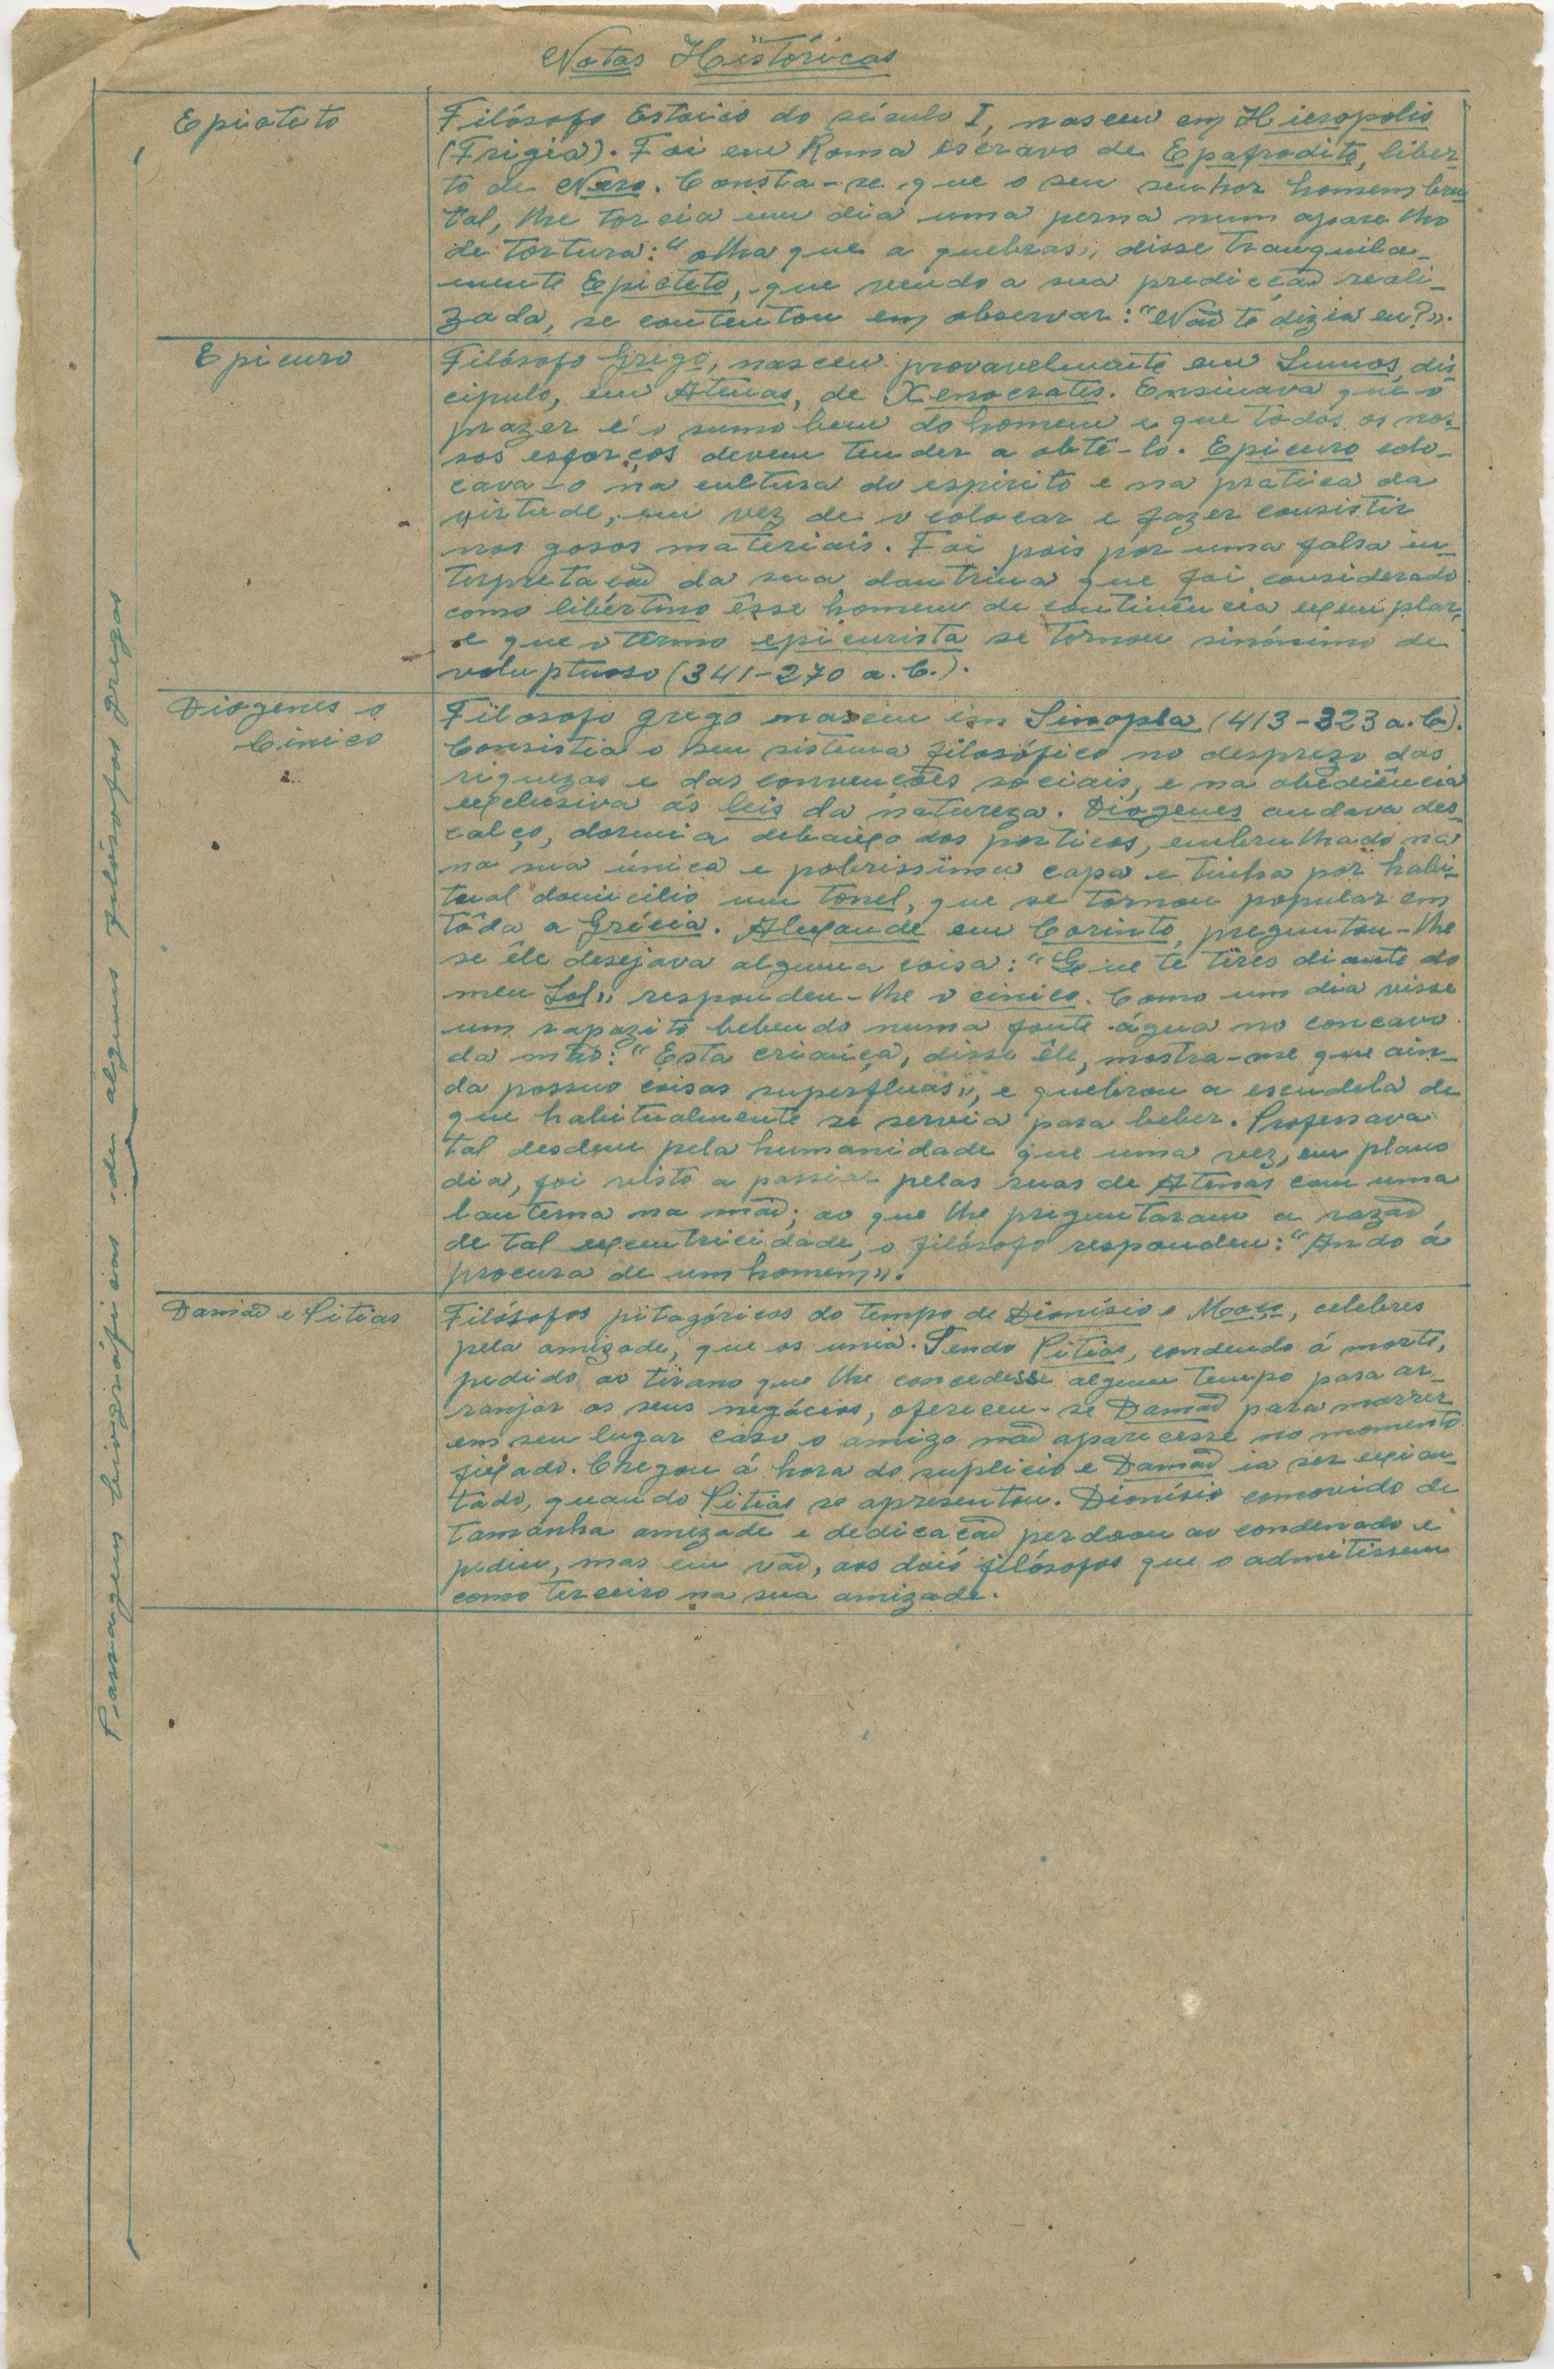 Notas Históricas
Passagens biográficas de alguns filósofos gregos
Epicteto
Filósofo Estoico do século I, nasceu em Hieropolis
(Frigia). Foi em Roma escravo de Epafrodito, liber-
to de Nero. Consta-se que o seu senhor homem bru
tal, lhe torcia um dia uma perna num aparelho
de tortura: "olha que a quebras», disse tranquila-
mente Epicteto, que vendo a sua predicção reali-
zada, se contentou em observar: "Não to dizia eu?».
Epicuro
Filósofo Grego, nasceu provavelmente em Sumos, dis
cipulo, em Atenas, de Xenocrates. Ensinava que o
prazer é o sumo bem do homem e que todos os nos-
sos esforços devem tender a obtê-lo. Epicuro colo-
cava-o na cultura do espirito e na pratica da
virtude, em vez de o colocar e fazer consistir
nos gosos materiais. Foi pois por uma falsa in-
terpretação da sua doutrina que foi considerado
como libertino êsse homem de continência exemplar,
e que o termo epicurista se tornou sinónimo de
voluptuoso (341-270 a.C.).
Diogenes o
Cinico
Filosofo grego nasceu em Sinopla (413-323 a.C.).
Consistia o seu sistema filosófico no desprezo das
riquezas e das convenções sociais, e na obediência
exclusiva ás leis da natureza. Diogenes andava des-
calço, dormia debaixo dos porticos, embrulhado na
na sua única e pobrissima capa e tinha por habi-
tual domicilio um tonel, que se tornou popular em
tôda a Grécia. Alexande em Corinto, preguntou-lhe
se êle desejava alguma coisa: "Que te tires diante do
meu Sol» respondeu-lhe o cinico. Como um dia visse
um rapazito bebendo numa fonte água no concavo
da mão: "Esta criança, disse êle, mostra-me que ain-
da possuo coisas superfluas», e quebrou a escudela de
que habitualmente se servia para beber. Professava
tal desdem pela humanidade que uma vez, em plano
dia, foi visto a passear pelas ruas de Atenas com uma
lanterna na mão; ao que lhe preguntaram a razão
de tal excentricidade, o filósofo respondeu: "Ando á
procura de um homem».
Damão e Pitias
Filósofos pitagóricos do tempo de Dionísio o Moço, celebres
pela amizade, que os unia. Tendo Pitias, condendo á morte,
pedido ao tirano que lhe concedesse algum tempo para ar-
ranjar os seus negócios, ofereceu-se Damão para morrer
em seu lugar caso o amigo não aparecesse no momento
fixado. Chegou á hora do suplicio e Damão ia ser
tado, quando Pitias se apresentou. Dionísio comovido de
tamanha amizade e dedicação perdoou ao condenado e
pediu, mas em vão, aos dois filósofos que o admitissem
como terceiro na sua amizade.